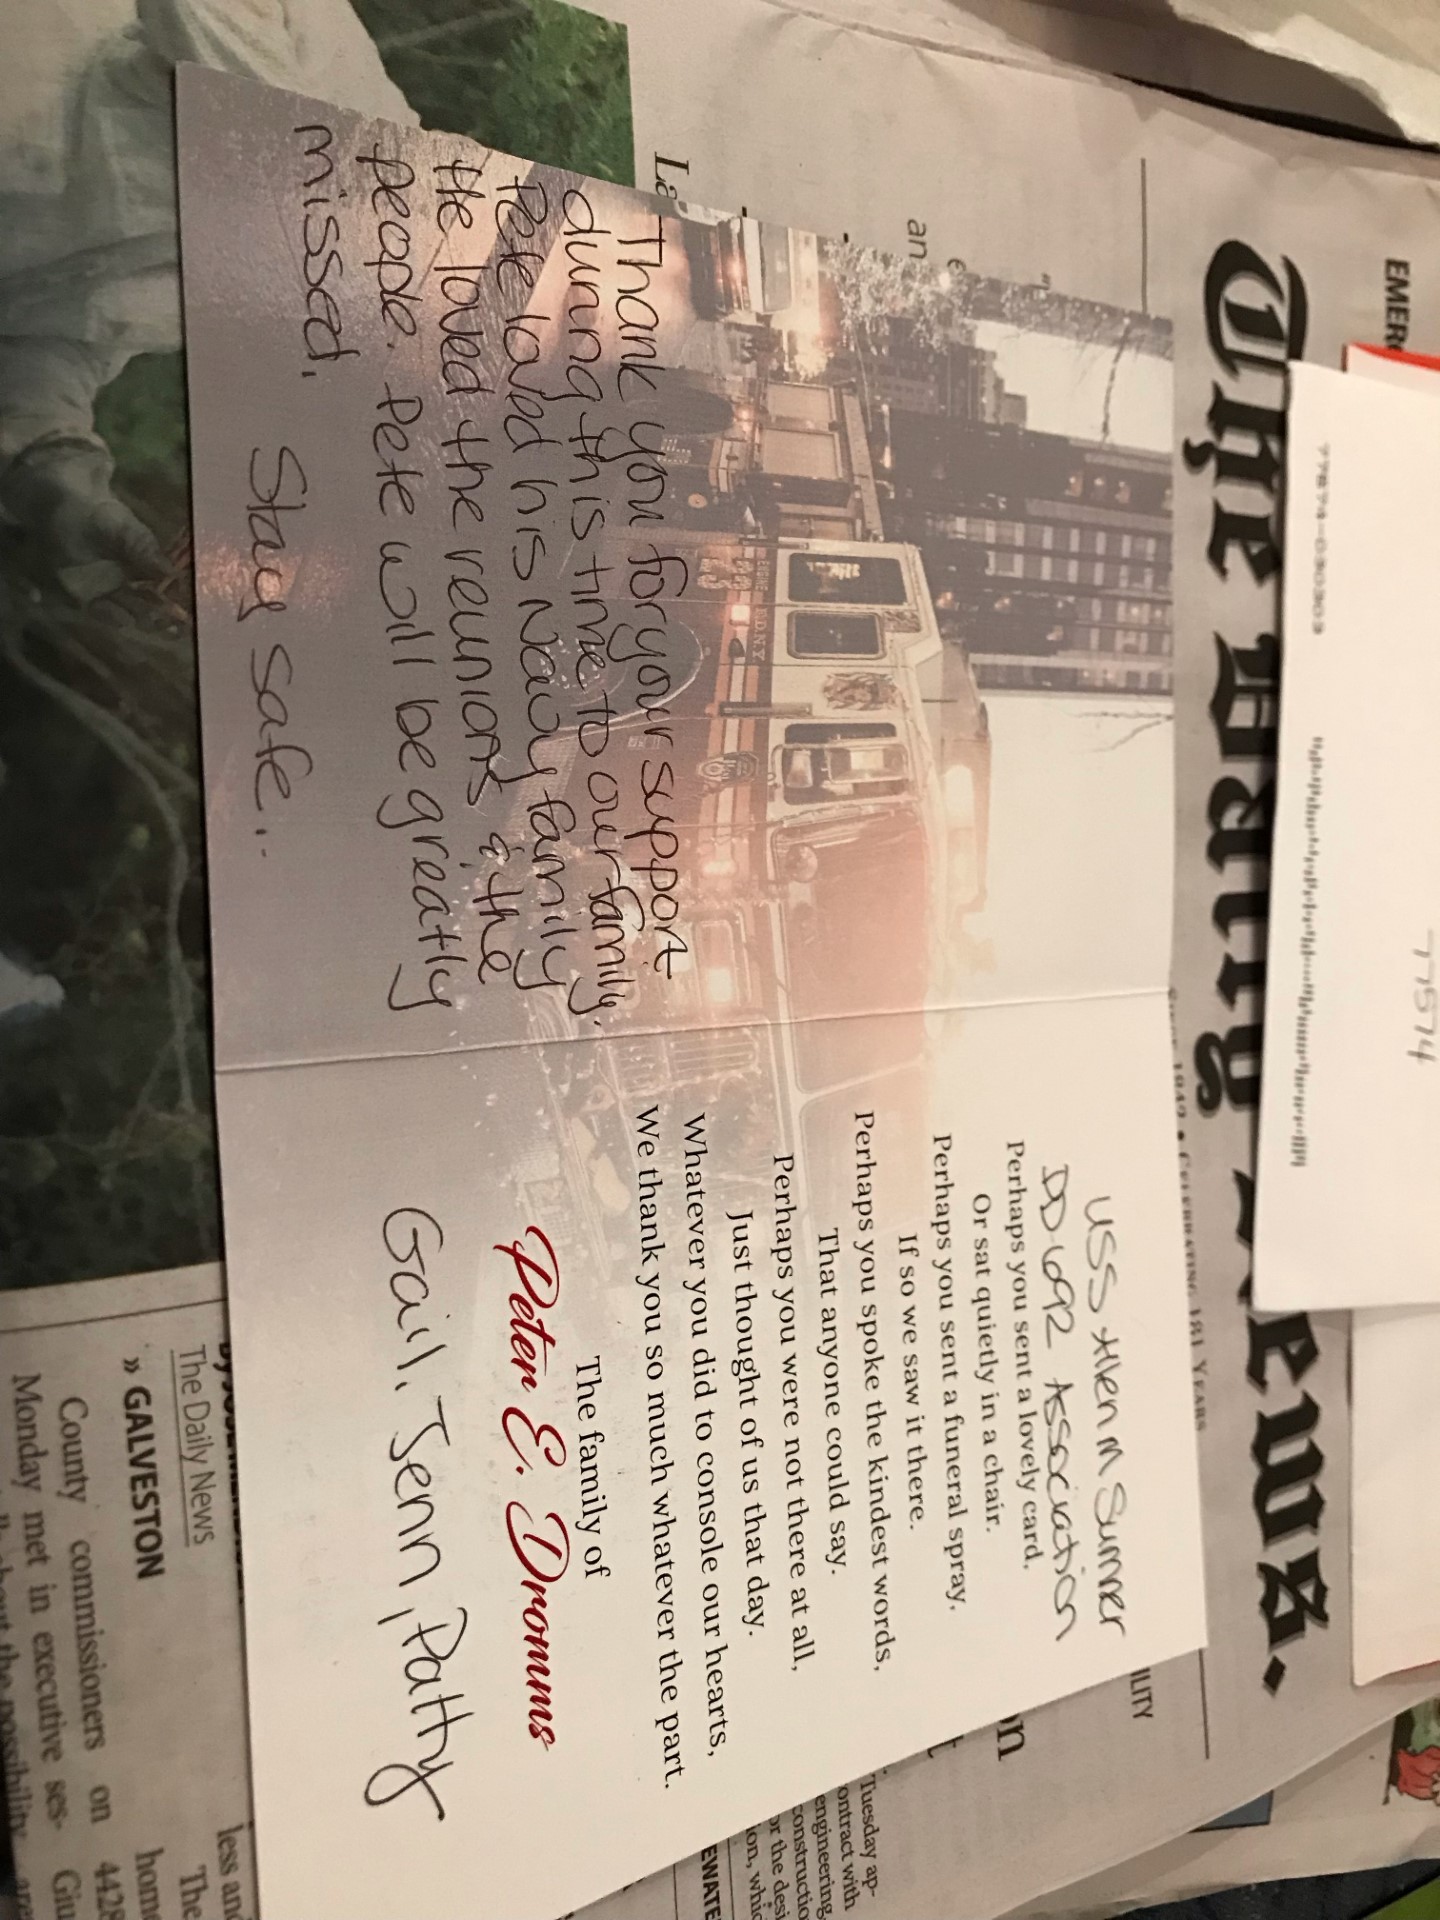 Thank you for your support
during this time to our family.
Pete loved his Navy family
He loved the reunions & the
people. Pete will be greatly
missed.
Stay safe..
USS Allen M Sumner
DD-692 Association
Perhaps you sent a lovely card,
Or sat quietly in a chair.
Perhaps you sent a funeral spray,
If so we saw it there.
Perhaps you spoke the kindest words,
That anyone could say.
Perhaps you were not there at all,
Just thought of us that day.
Whatever you did to console our hearts,
We thank you so much whatever the part.
The family of
Peter E. Dromms
Gail, Jenn, Patty
ENGINE
F.D.N.Y.
The Daily News.
CELEBRATING 181 YEARS
77574
EMER
an
ILITY
on
Tuesday ap-
ontract with
engineering,
constructio
or the desi
ion, whic
EWATE
The Daily News
» GALVESTON
County commissioners on
Monday met in executive ses-
less and
The
home
4428
Giu